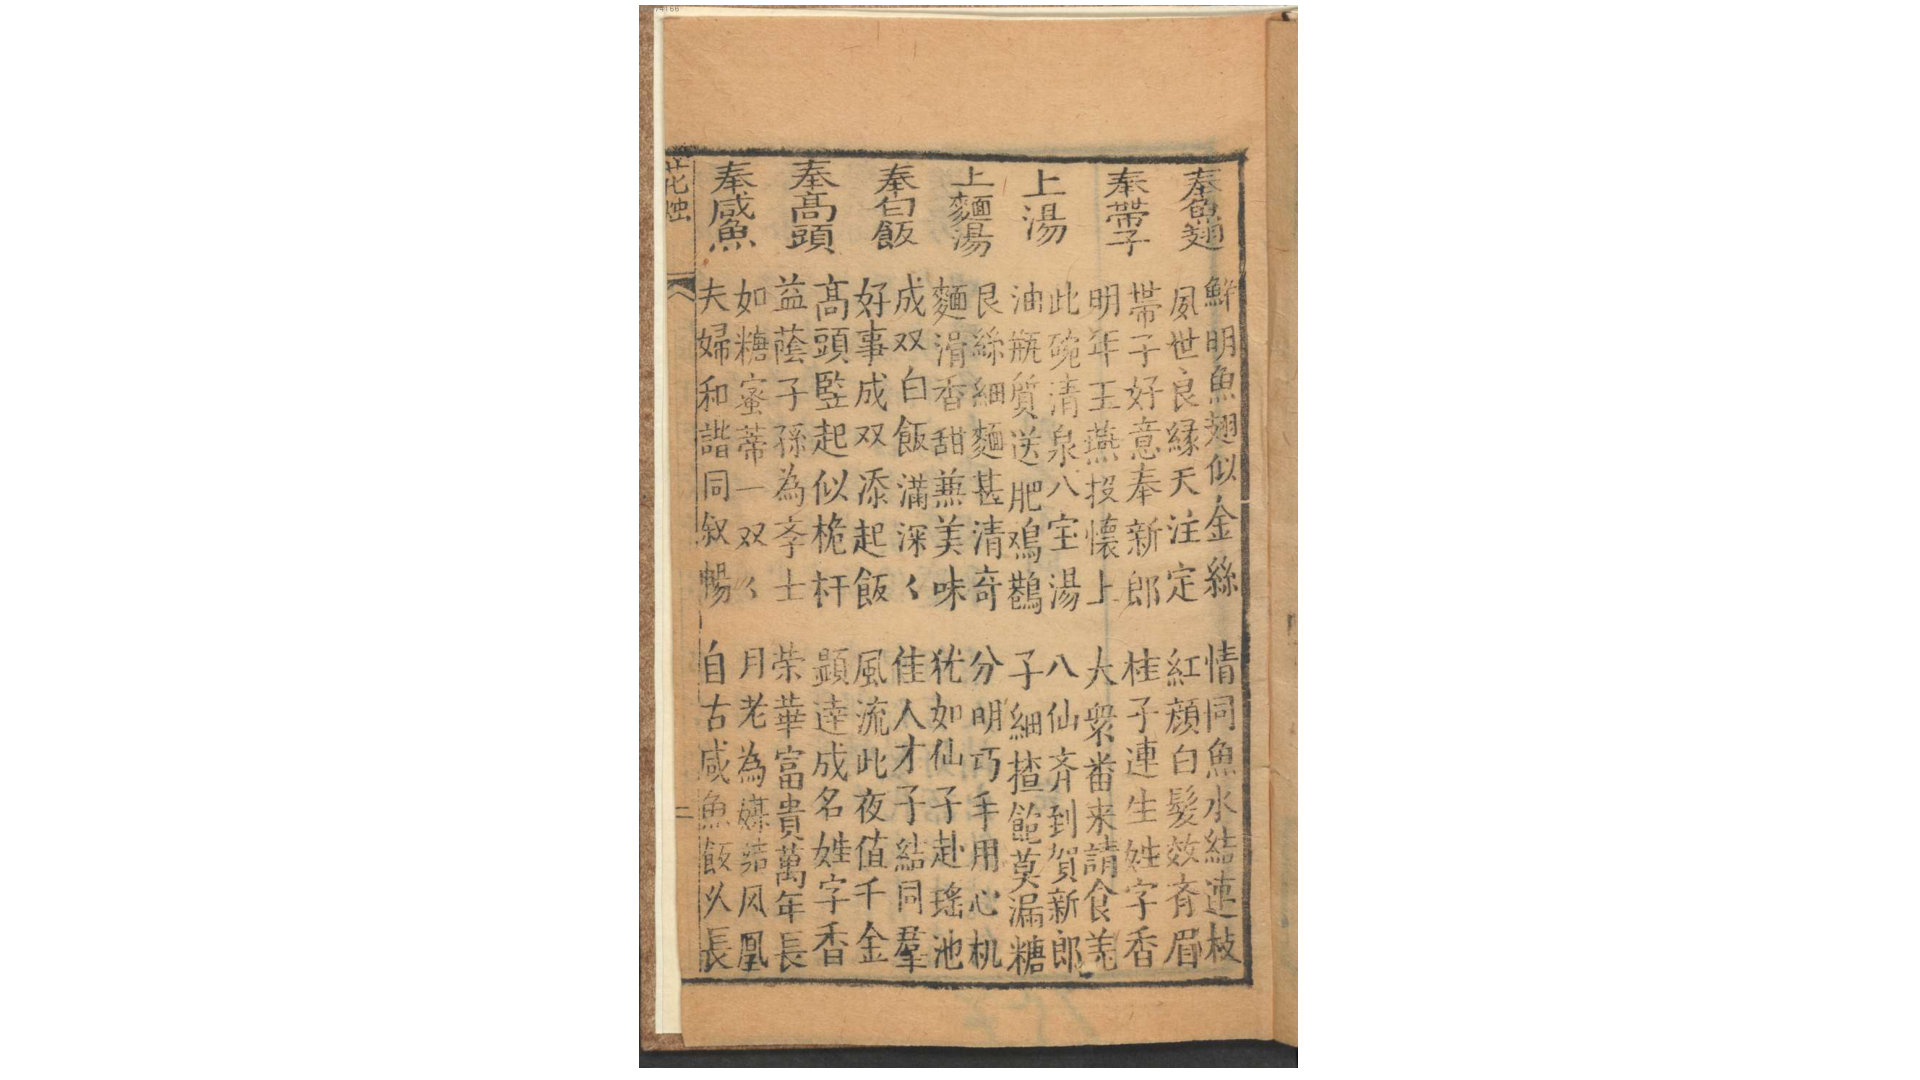 奉魚翅
鮮明魚翅似金絲 情同魚水結連枝
夙世良緣天注定 紅顔白髮效斉眉
奉帶子
帯子好意奉新郎 桂子連生姓字香
明年玉燕投懷上 大衆番来請食羌
上湯
此碗清泉八宝湯 八仙斉到賀新郎
油瓶質送肥鳮鵲 子細揸飽莫漏糖
上麵湯
艮絲細麵甚清奇 分明巧手用心机
麵滑香甜兼美味 犹如仙子赴瑤池
奉白飯
成双白飯滿深〻 佳人才子結同羣
好事成双添起飯 風流此夜值千金
奉髙頭
髙頭竪起似桅杆 顕逹成名姓字香
益蔭子孫為孝士 荣華富貴萬年長
奉咸魚
如糖蜜蒂一双〻 月老為媒締凤凰
夫婦和諧同叙暢 自古咸魚飯以長
花烛
二